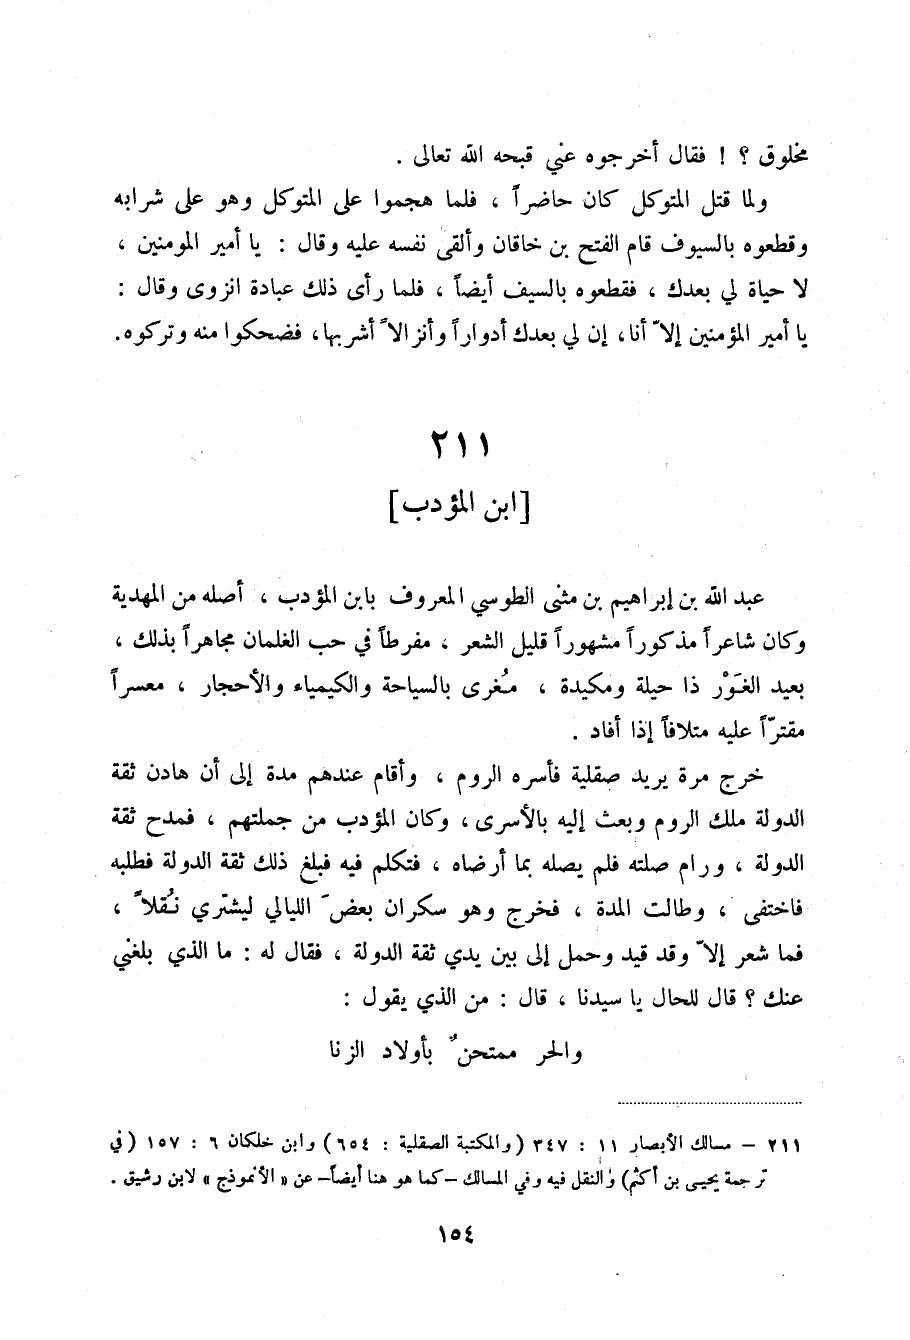 مخلوق ؟ ! فقال أخرجوه عني قبحه الله تعالى .
ولما قتل المتوكل كان حاضراً ، فلما هجموا على المتوكل وهو على شرابه
وقطعوه بالسيوف قام الفتح بن خاقان وألقى نفسه عليه وقال : يا أمير المومنين ،
لا حياة لي بعدك ، فقطعوه بالسيف أيضاً ، فلما رأى ذلك عبادة انزوى وقال :
يا أمير المؤمنين إلاّ أنا، إن لي بعدك أدواراً وأنزالاً أشربها، فضحكوا منه وتركوه.
٢١١
[ابن المؤدب]
عبد الله بن إبراهيم بن مثنى الطوسي المعروف بابن المؤدب ، أصله من المهدية
وكان شاعراً مذكوراً مشهوراً قليل الشعر ، مفرطاً في حب الغلمان مجاهراً بذلك ،
بعيد الغَوْر ذا حيلة ومكيدة ، مُغرى بالسياحة والكيمياء والأحجار ، معسراً
مقتّراً عليه متلافاً إذا أفاد .
خرج مرة يريد صقلية فأسره الروم ، وأقام عندهم مدة إلى أن هادن ثقة
الدولة ملك الروم وبعث إليه بالأسرى، وكان المؤدب من جملتهم ، فمدح ثقة
الدولة ، ورام صلته فلم يصله بما أرضاه ، فتكلم فيه فبلغ ذلك ثقة الدولة فطلبه
فاختفى ، وطالت المدة ، فخرج وهو سكران بعضَ الليالي ليشتري نُقلاً ،
فما شعر إلاّ وقد قيد وحمل إلى بين يدي ثقة الدولة ، فقال له : ما الذي بلغني
عنك ؟ قال للحال يا سيدنا ، قال : من الذي يقول :
والحر ممتحنٌ بأولاد الزنا
٢١١ – مسالك الأبصار ١١ : ٣٤٧ (والمكتبة الصقلية : ٦٥٤) وابن خلكان ٦ : ١٥٧ (في
ترجمة يحيى بن أكثم) والنقل فيه وفي المسالك –كما هو هنا أيضاً– عن « الأنموذج » لابن رشيق .
١٥٤